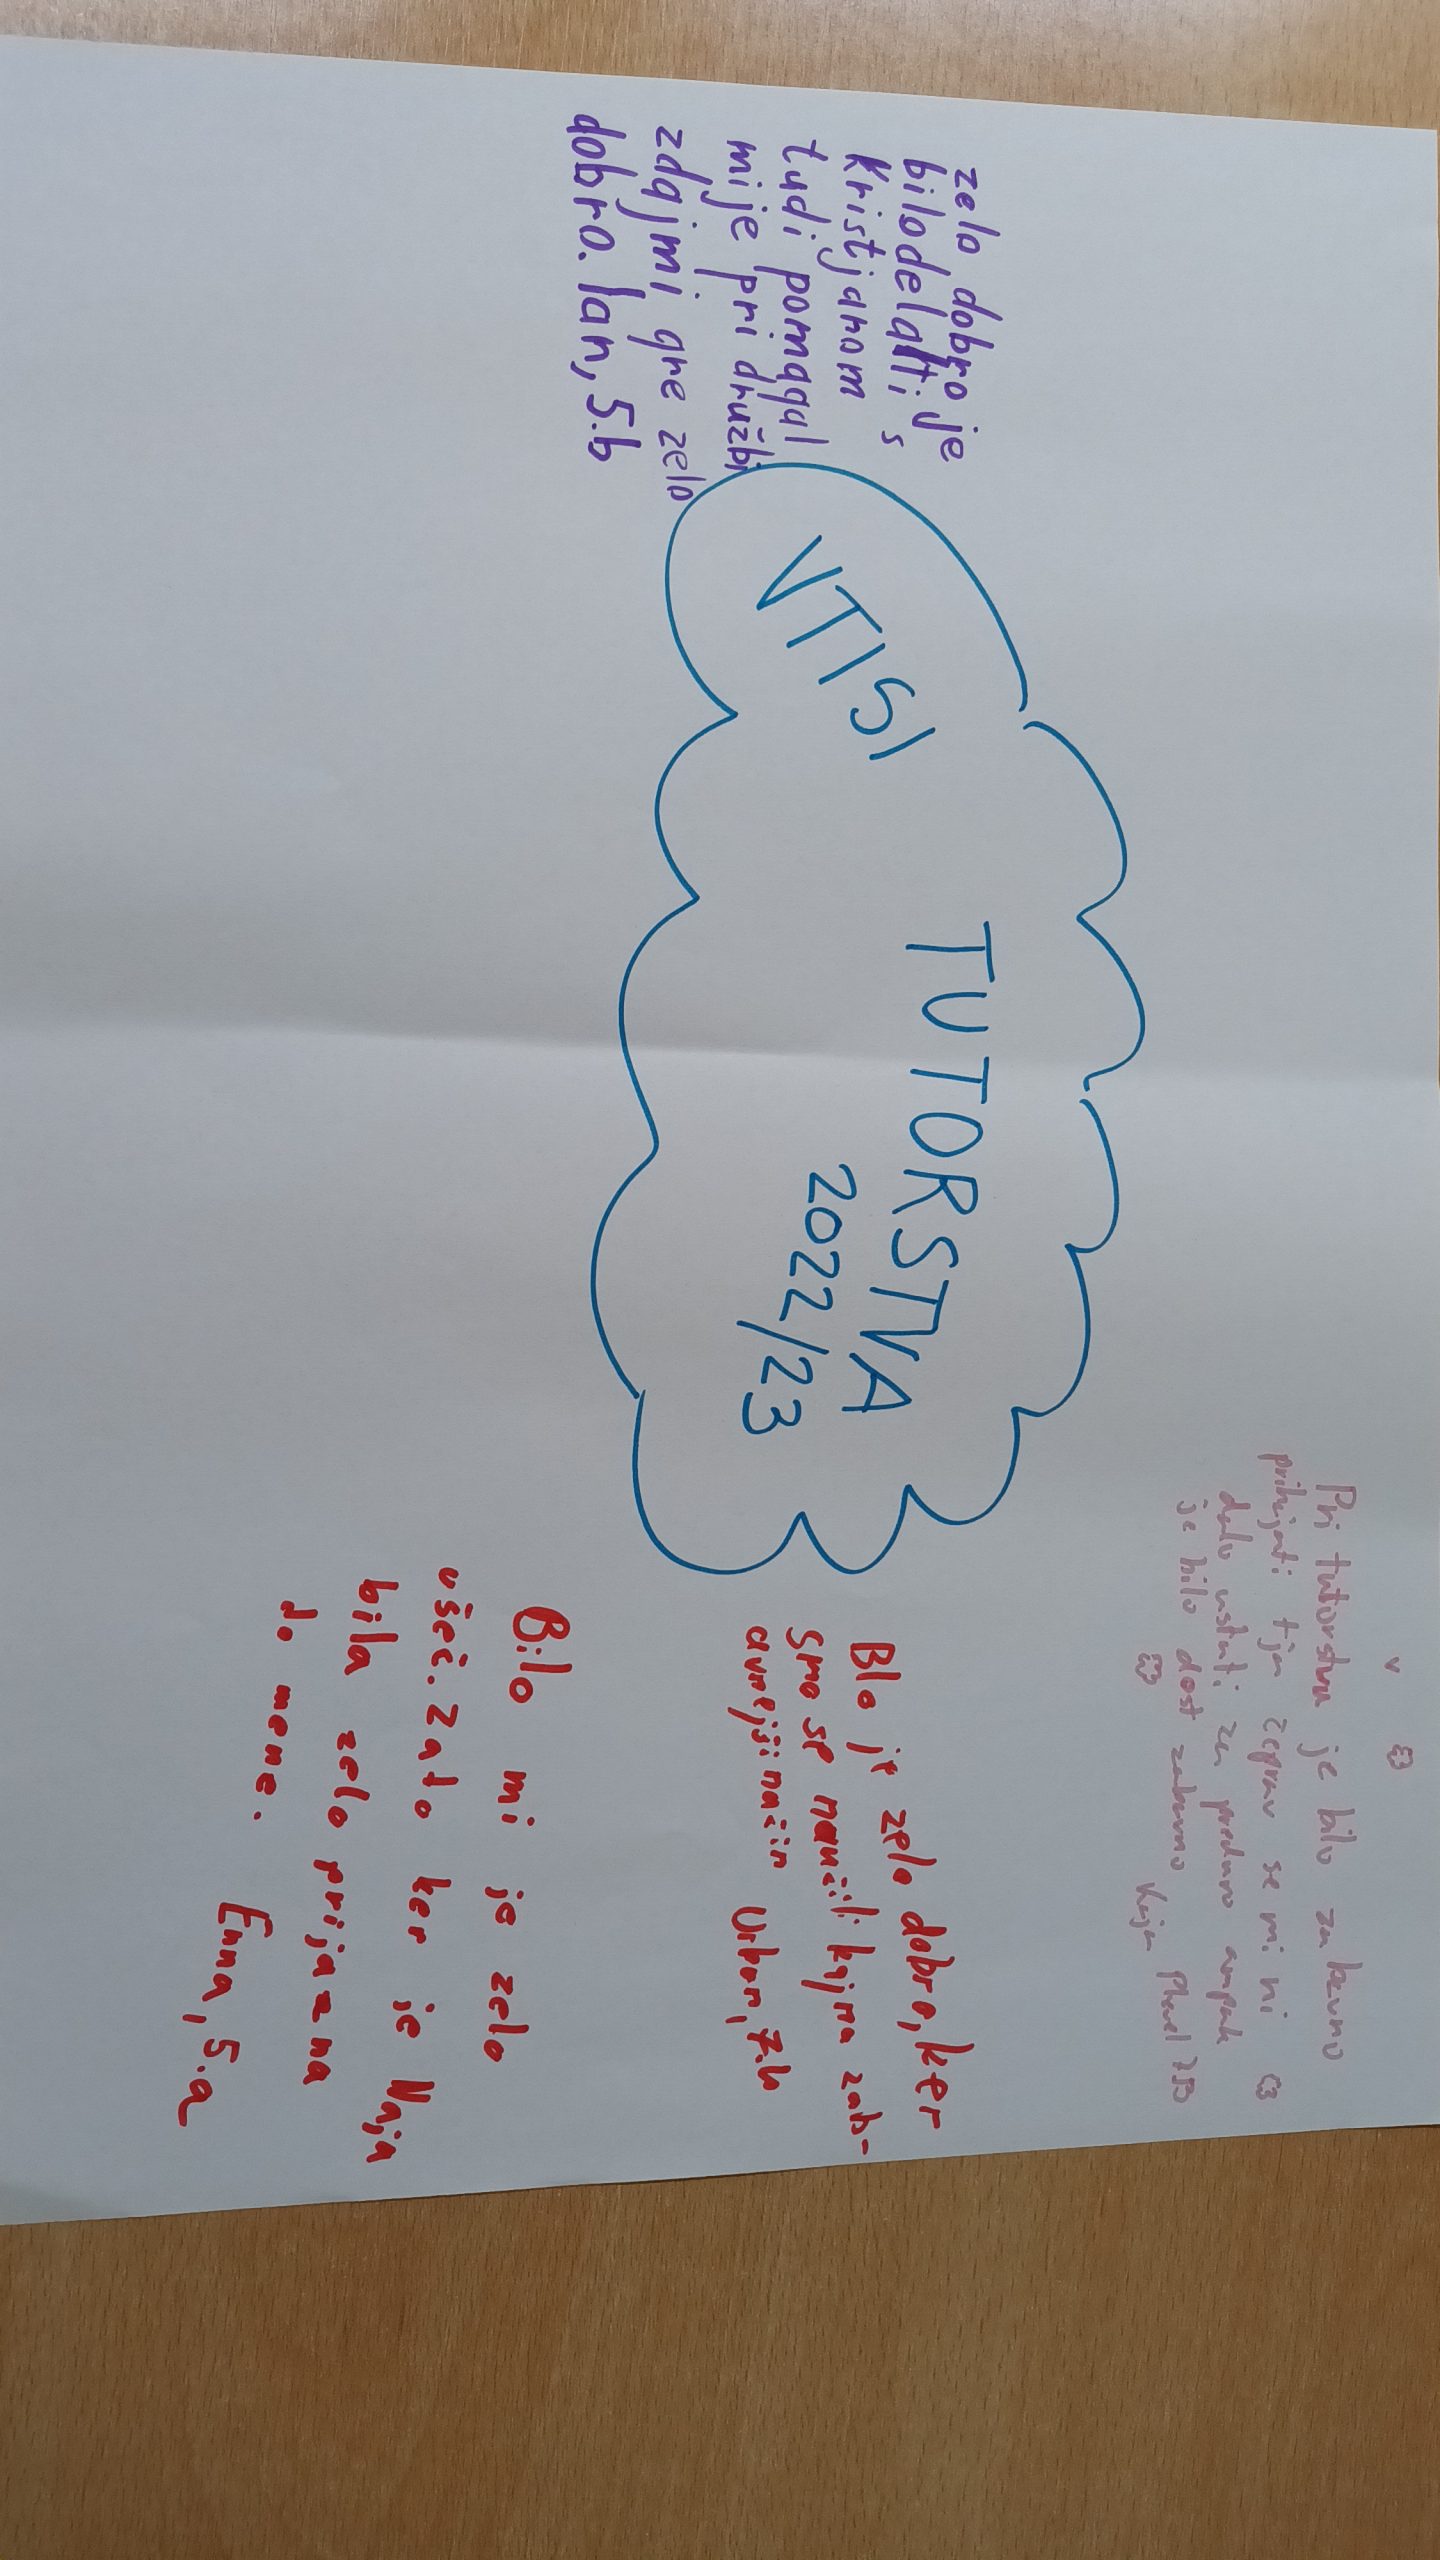 VTISI
TUTORSTVA
2022/23
zelo dobro je
bilo delati s
Kristjanom
tudi pomagal
mi je pri družbi
zdaj mi gre zelo
dobro. Ian, 5.b
Pri tutorstvu je bilo zabavno
prihajati tja čeprav se mi ni
dalo ustati za preduro ampak
je bilo dost zabavno Kaja
Blo je zelo dobro, ker
smo se naučili kaj na zab-
avnejši način Urban, 7.b
Bilo mi je zelo
všeč. Zato ker je Naja
bila zelo prijazna
do mene.
Enna, 5.a